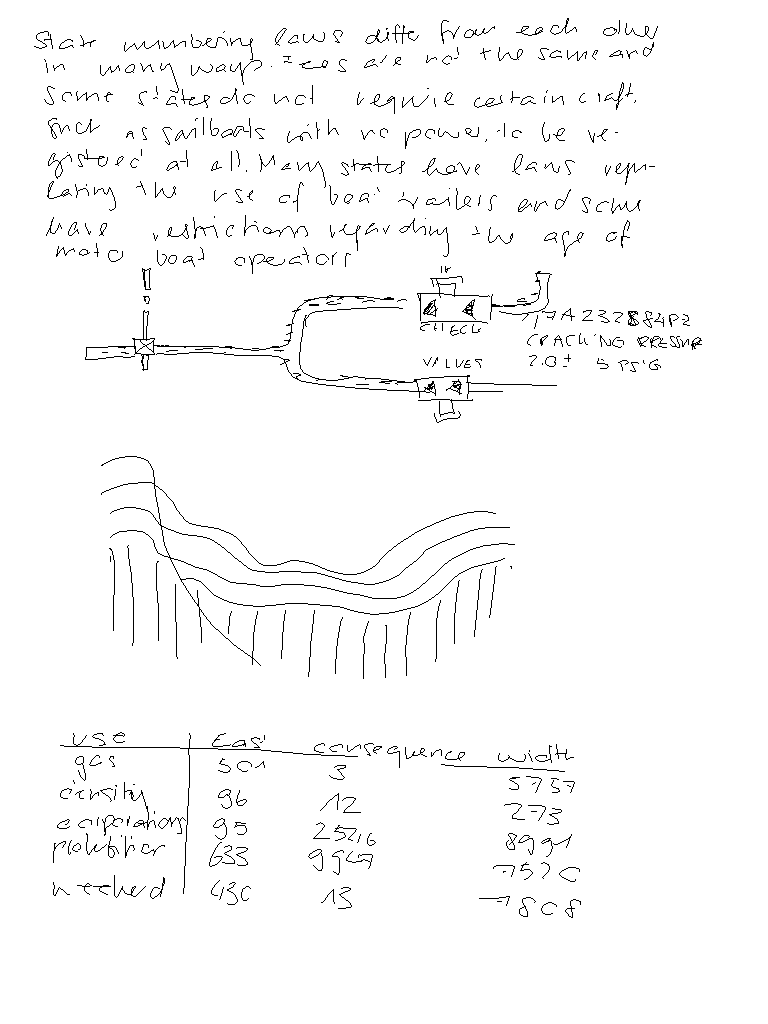 State numbering laws differ from each other
in many ways. Fees are not the same and
some states do not require certain craft,
such as sailboats with no power, to be re-
gistered at all. Many states have laws regu-
lating the use of boat trailers and some
have restrictions regarding the age of
motor boat operators
CHECK
VALVES
77A232884P2
CRACKING PRESSURE
2.0± 5 PSIG
use East consequence width
gas 501 3 5757
density 96 12 273
corporations 95 25216 8991
prohibition 633 9947 7520
method 430 13 7808